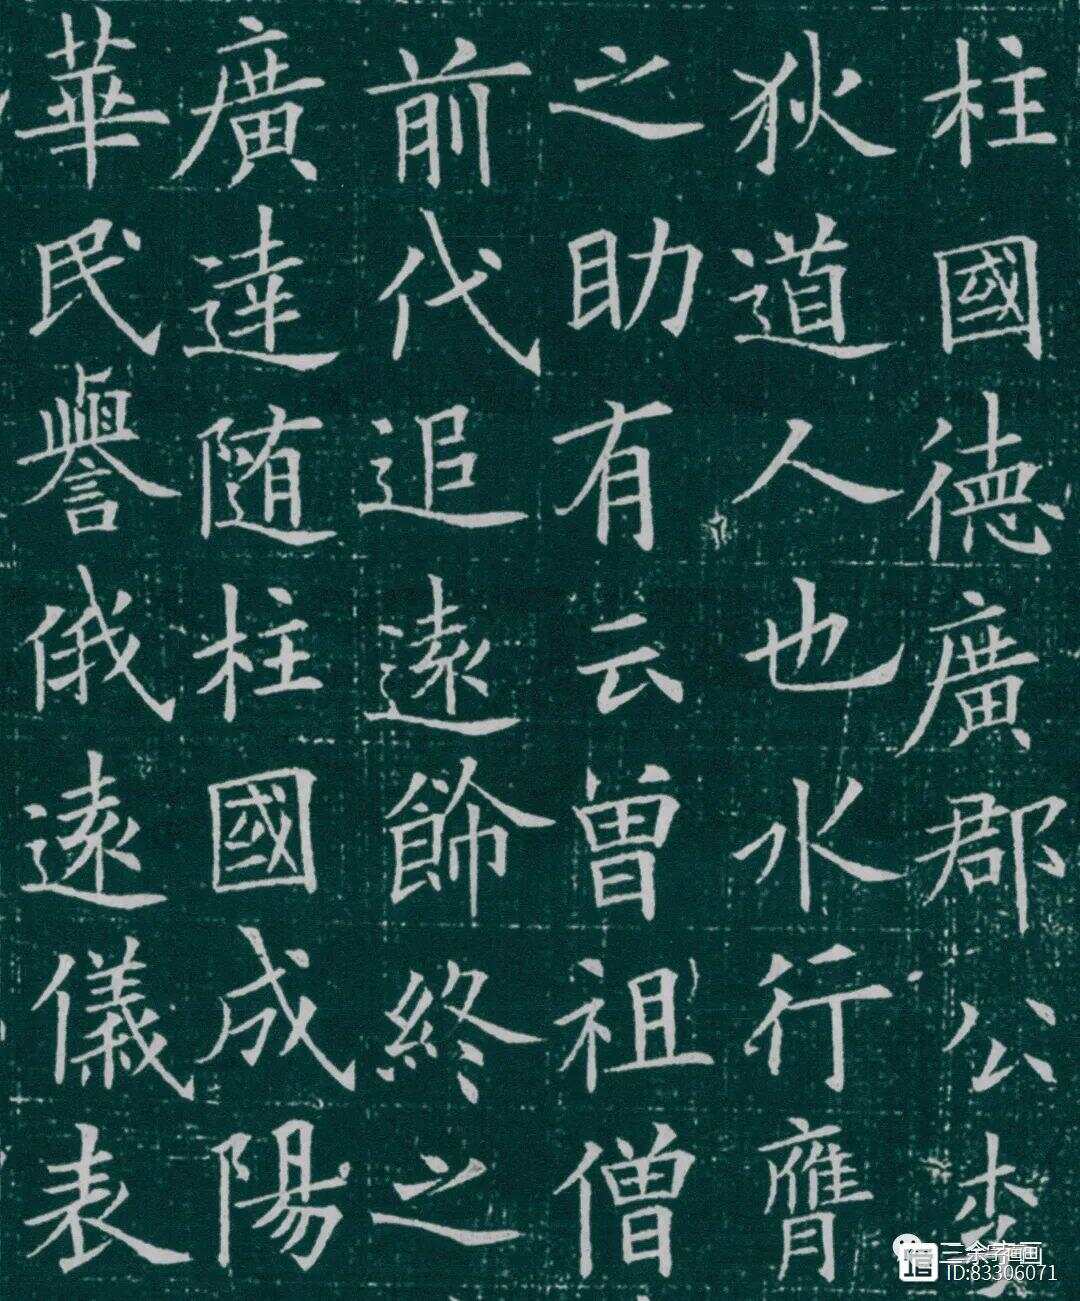 柱國德廣郡公
狄道人也水行膺
之助有云曾祖僧
前代追遠飾終之
廣達随柱國成陽
華民譽俄遠儀表
ID:83306071